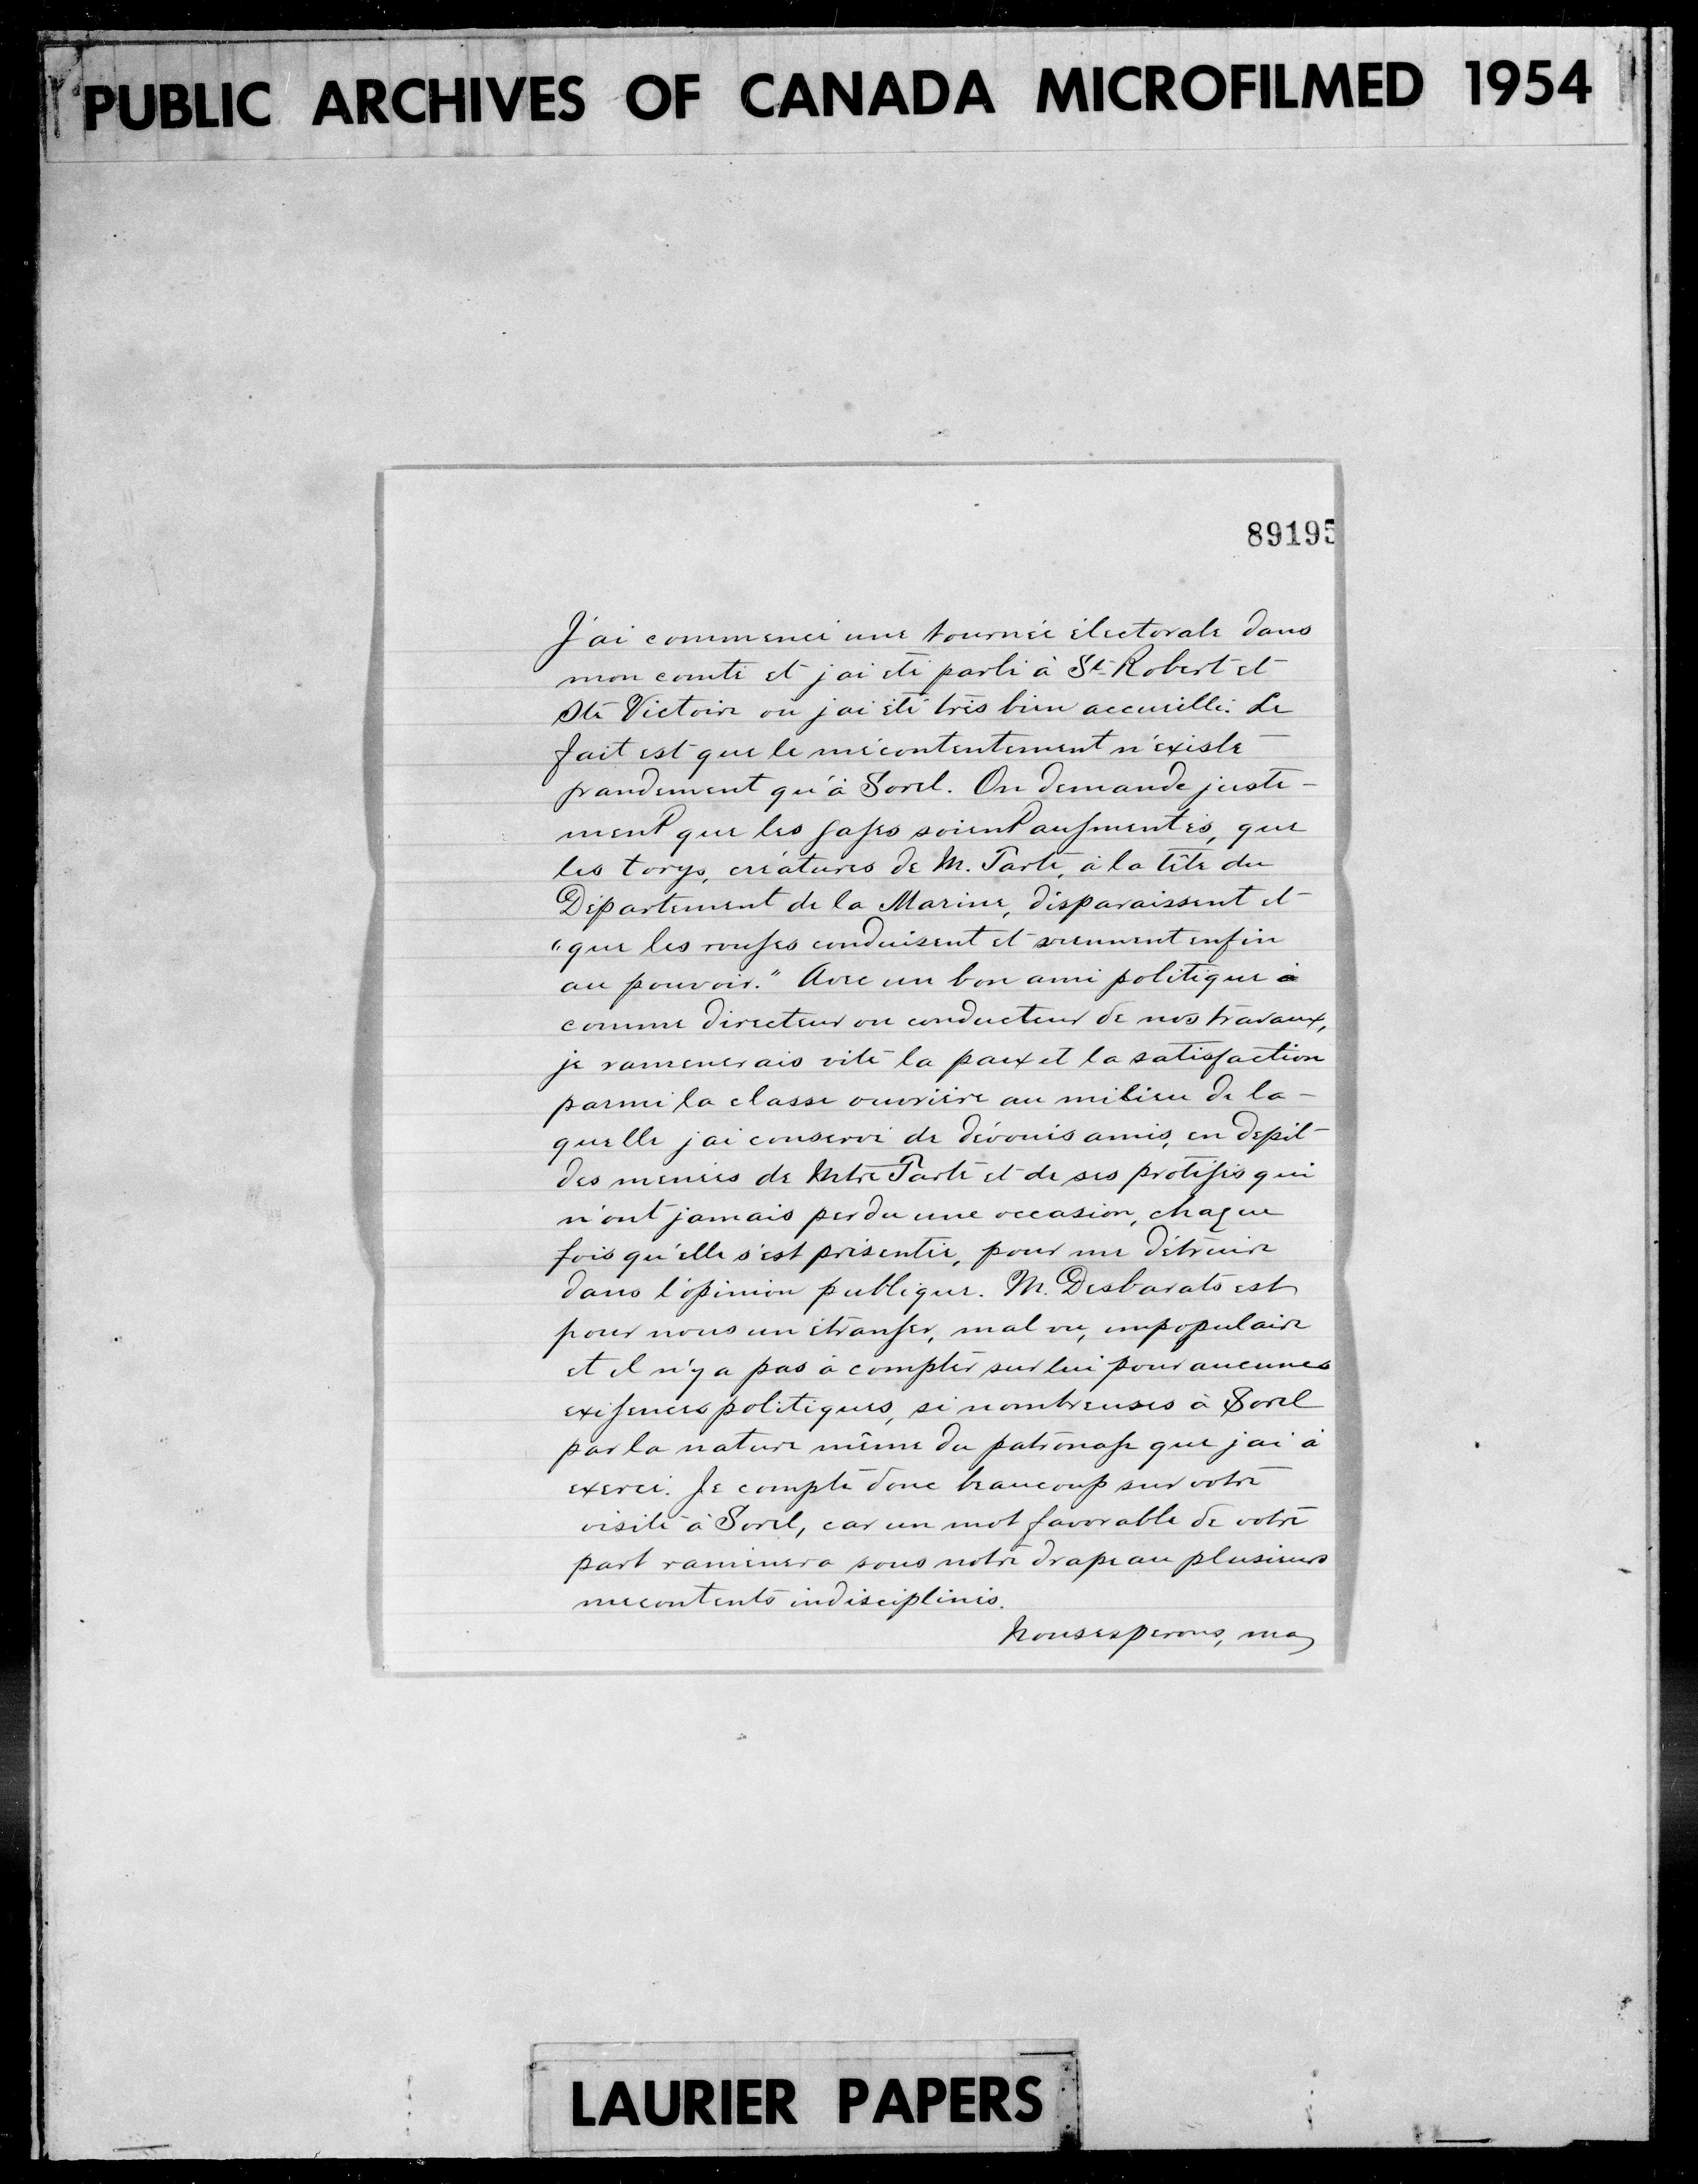 PUBLIC ARCHIVES OF CANADA MICROFILMED 1954
89195
J'ai commencé une tournée électorale dans
mon comté et j'ai été parlé à St-Robert et
Ste Victoire où j'ai été très bien accueilli. Le
fait est que le mécontentement n'existe
grandement qu'à Sorel. On demande juste-
ment que les gages soient augmentés, que
les torys, créatures de M. Tarte, à la tête du
Département de la Marine, disparaissent et
"que les rouges conduisent et viennent enfin
au pouvoir." Avec un bon ami politique à
comme directeur ou conducteur de nos travaux,
je ramenerais vite la paix et la satisfaction
parmi la classe ouvrière au milieu de la-
quelle j'ai conservé de dévoués amis, en dépit
des menées de Mtre Tarte et de ses protégés qui
n'ont jamais perdu une occasion, chaque
fois qu'elle s'est présentée, pour me détruire
dans l'opinion publique. M. Desbarats est
pour nous un étranger, mal vu, impopulaire
et il n'y a pas à compter sur lui pour aucunes
exigences politiques, si nombreuses à Sorel
par la nature même du patronage que j'ai à
exercé. Je compte donc beaucoup sur votre
visite à Sorel, car un mot favorable de votre
part ramènera sous notre drapeau plusieurs
mécontents indisciplinés.
Nous esperons, ma
LAURIER PAPERS